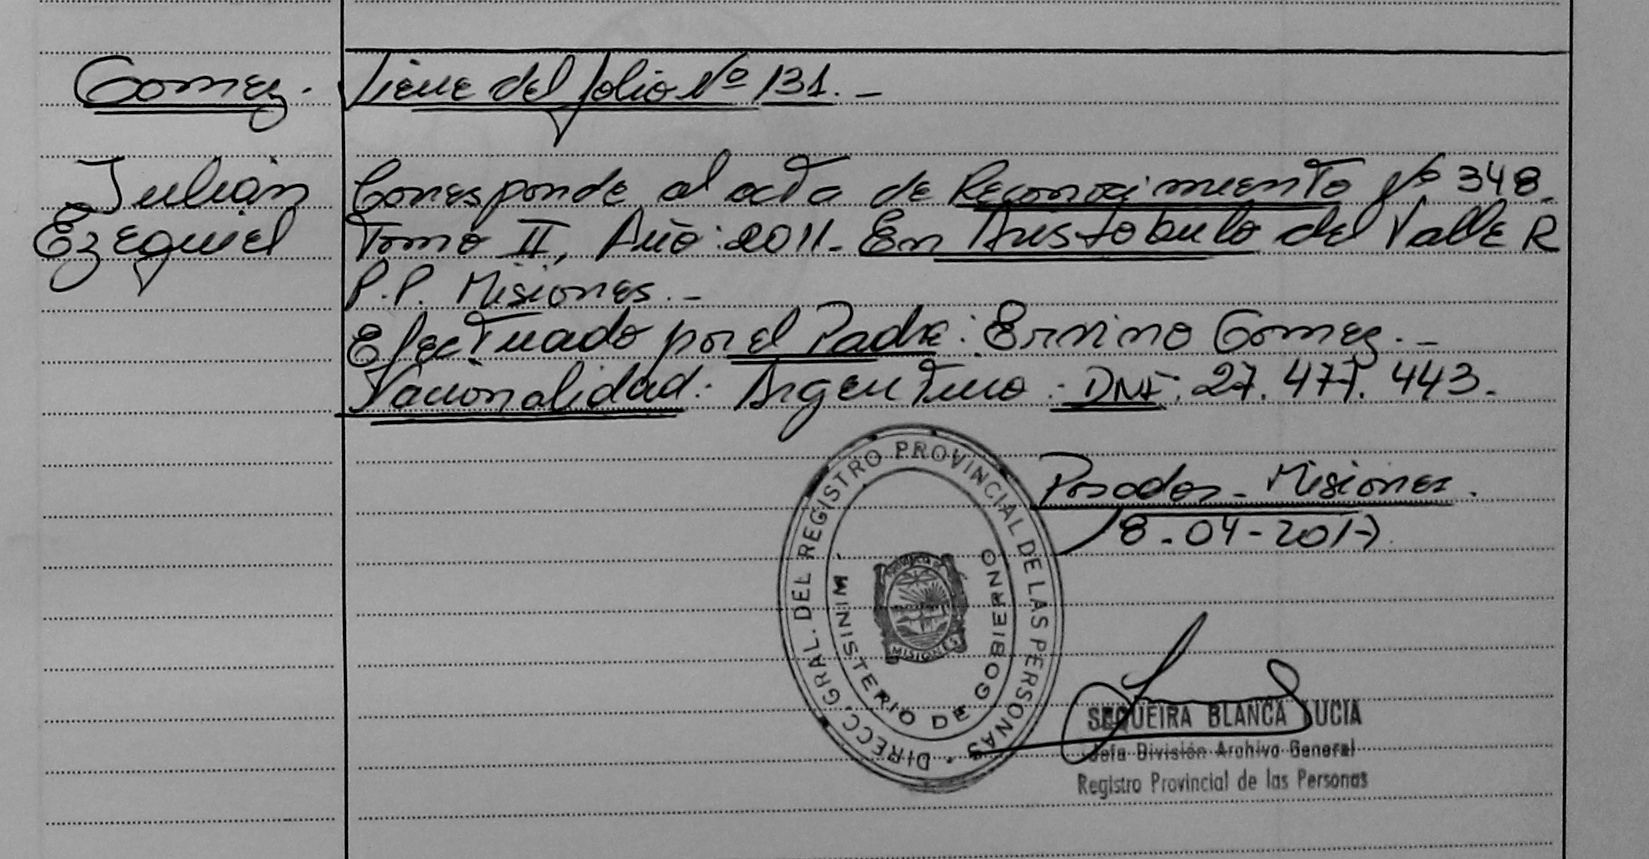 Gomez. Viene del folio Nº 131. -
Julián
Ezequiel
Corresponde al acta de Reconocimiento Nº 348.
Tomo II, Año: 2011. En Aristobulo del Valle R
P.P. Misiones. -
Efectuado por el Padre: Ermino Gomez. -
Nacionalidad: Argentino: DNI: 27.477.443.
Posadas - Misiones.
18-04-2017
DIRECC. GRAL. DEL REGISTRO PROVINCIAL DE LAS PERSONAS
MINISTERIO DE GOBIERNO
MISIONES
SEQUEIRA BLANCA LUCIA
Jefa División Archivo General
Registro Provincial de las Personas